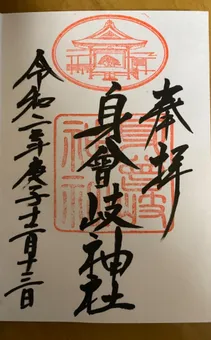 奉拝
身曾岐神社
令和二年庚子十二月十三日